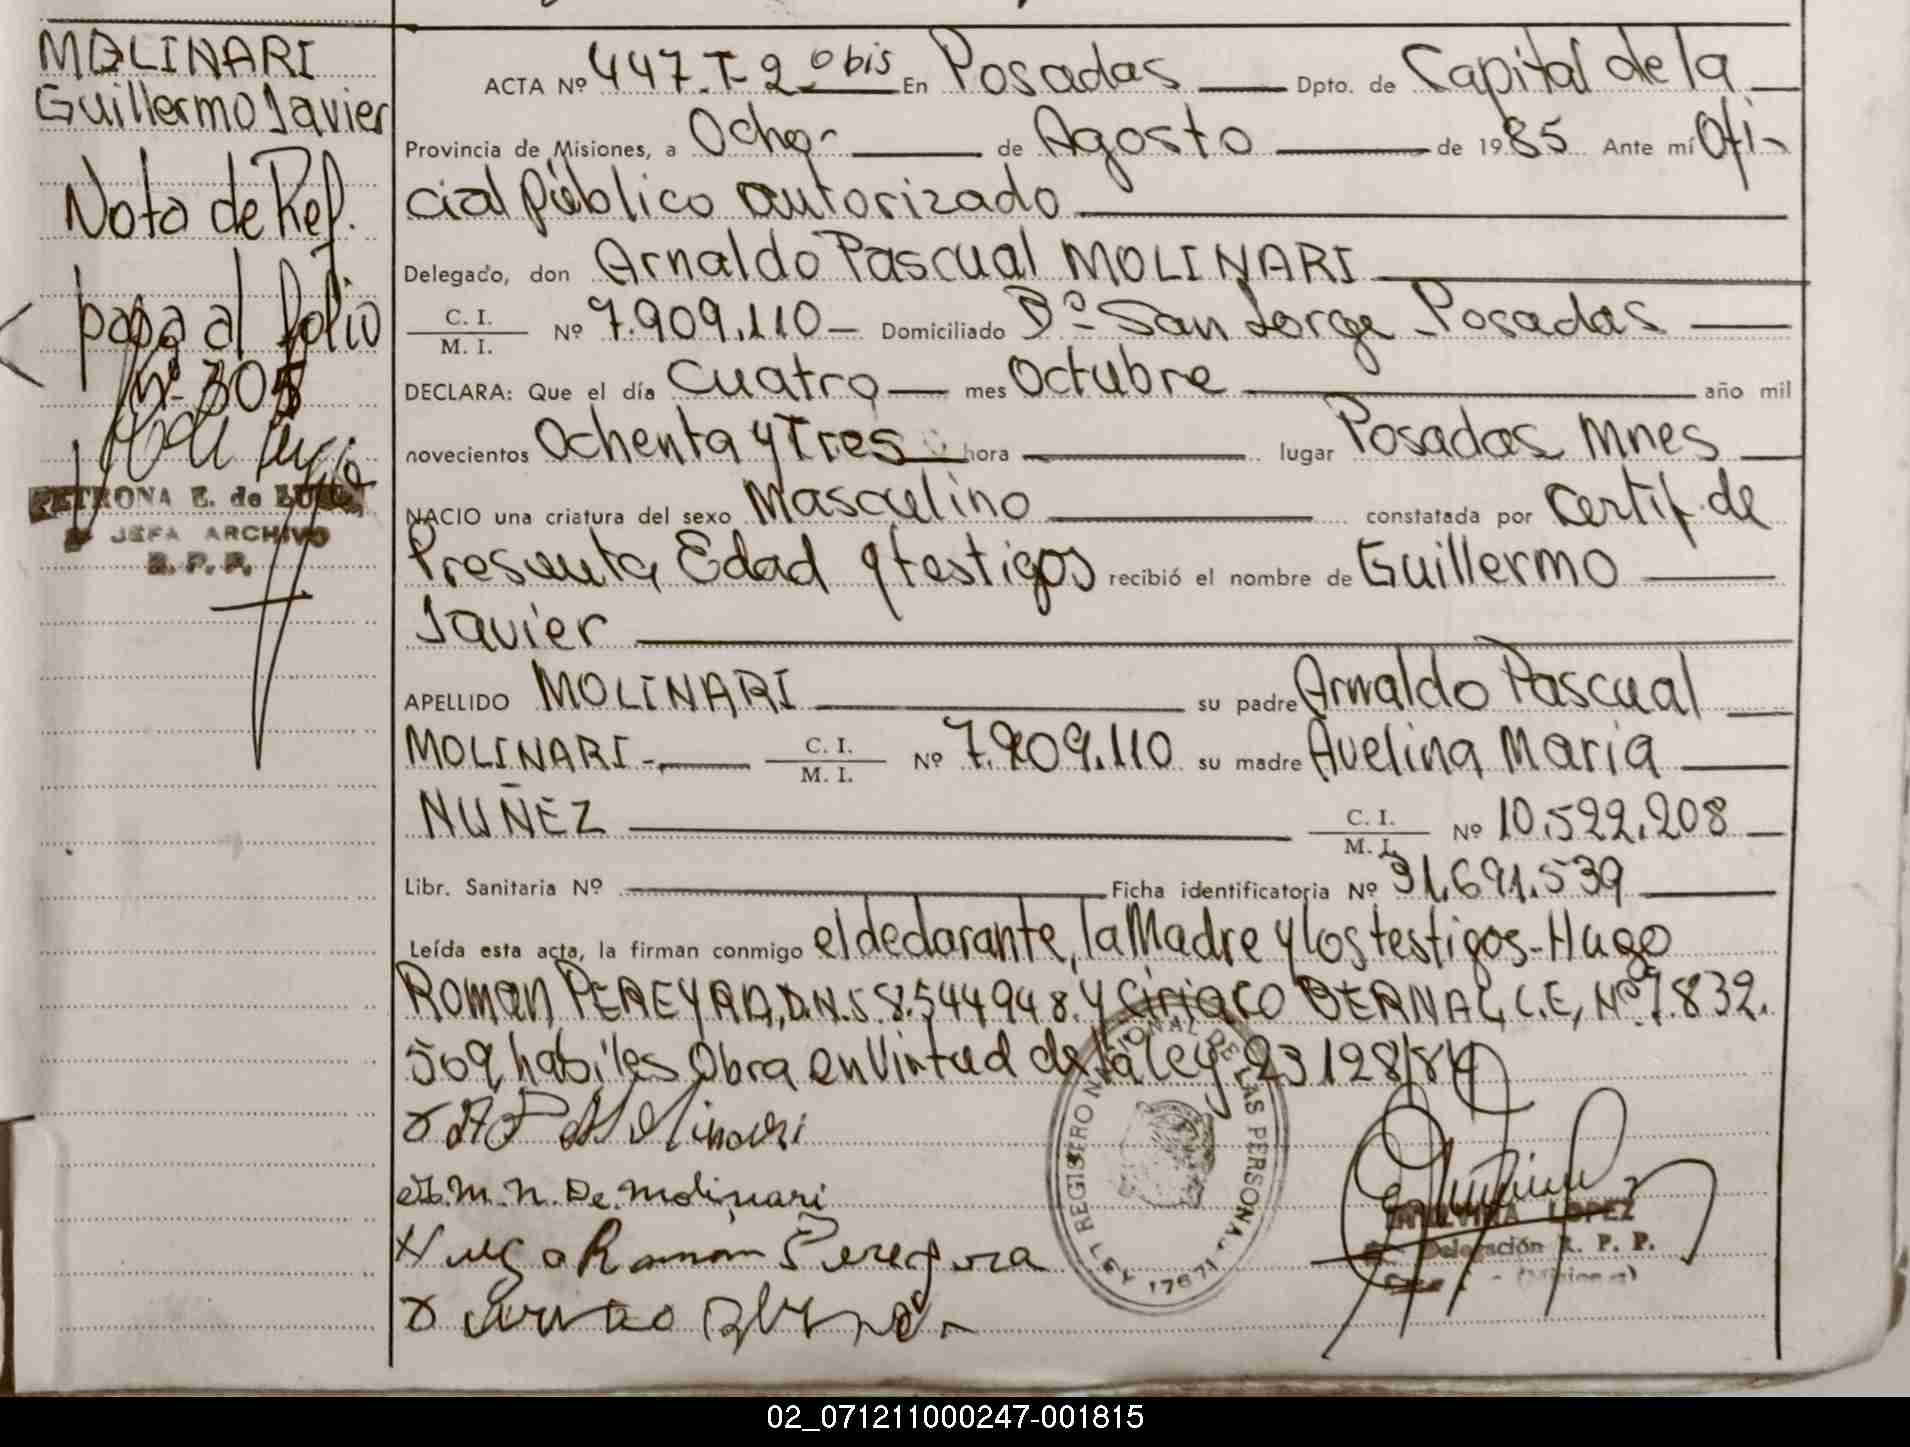 MOLINARI
Guillermo Javier
Nota de Ref.
pasa al folio
Nº 305
PETRONA E. de
JEFA ARCHIVO
R. P. P.
ACTA Nº 447. T-2º bis En Posadas Dpto. de Capital de la
Provincia de Misiones, a Ocho de Agosto de 1985 Ante mí Ofi-
cial público autorizado
Delegado, don Arnaldo Pascual MOLINARI
C. I.
M. I. Nº 7.909.110- Domiciliado Bº San Jorge Posadas
DECLARA: Que el día Cuatro mes Octubre año mil
novecientos Ochenta y Tres hora lugar Posadas Mnes
NACIO una criatura del sexo Masculino constatada por Certif. de
Presunta Edad y testigos recibió el nombre de Guillermo
Javier
APELLIDO MOLINARI su padre Arnaldo Pascual
MOLINARI- C. I.
M. I. Nº 7.909.110 su madre Avelina Maria
NUÑEZ C. I.
M. I. Nº 10.522.208
Libr. Sanitaria Nº Ficha identificatoria Nº 31.691.539
Leída esta acta, la firman conmigo el declarante, la Madre y los testigos - Hugo
Roman PEREYRA, D.N.S 8.544948. y Ciriaco BERNAL L.E, Nº 7.832.
509, habiles Obra en Virtud de la ley 23128/84
A P Molinari
A. M. N. De. Molinari
Hugo Ramon Pereyra
REGISTRO NACIONAL DE LAS PERSONAS
LEY 17671
LOPEZ
Delegación R. P. P.
(Misiones)
02_071211000247-001815